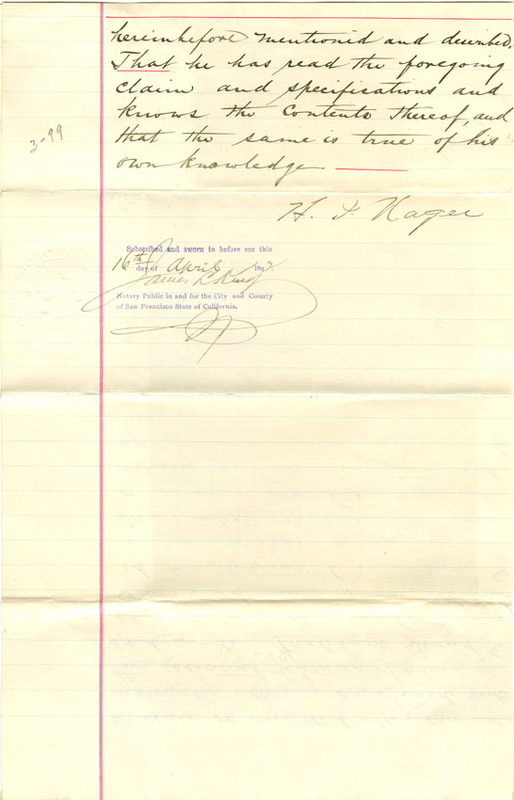 hereinbefore mentioned and described.
That he has read the foregoing
claim and specifications and
knows the contents thereof, and
that the same is true of his
own knowledge
3-99
H. F. Nagee
Subscribed and sworn to before me this
16th day of April 189
James
Notary Public in and for the City and County
of San Francisco State of California.